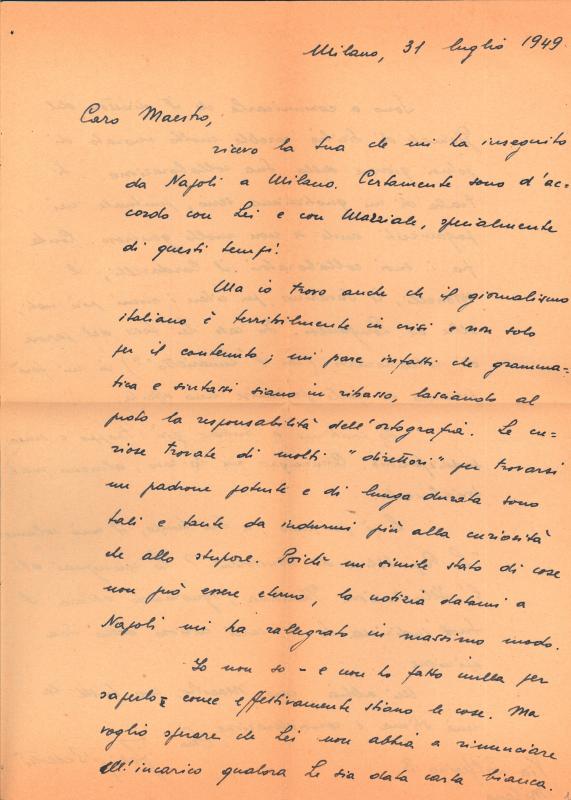 Milano, 31 luglio 1949.
Caro Maestro,
ricevo la Sua che mi ha inseguito
da Napoli a Milano. Certamente sono d'ac-
cordo con Lei e con Marziale, specialmente
di questi tempi!
Ma io trovo anche che il giornalismo
italiano è terribilmente in crisi e non solo
per il contenuto; mi pare infatti che gramma-
tica e sintassi siano in ribasso, lasciando al
proto la responsabilità dell'ortografia. Le cu-
riose trovate di molti "direttori" per trovarsi
un padrone potente e di lunga durata sono
tali e tante da indurmi più alla curiosità
che allo stupore. Poichè un simile stato di cose
non può essere eterno, la notizia datami a
Napoli mi ha rallegrato in massimo modo.
Io non so - e non ho fatto nulla per
saperlo - come effettivamente stiano le cose. Ma
voglio sperare che Lei non abbia a rinunciare
all'incarico qualora Le sia data carta bianca.